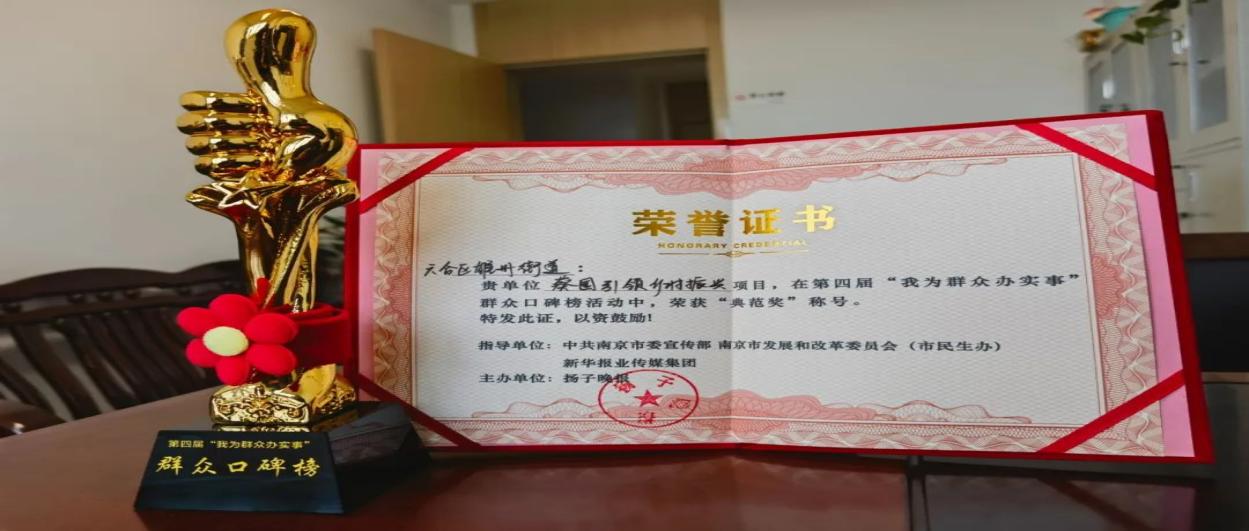 荣誉证书
HONORARY CREDENTIAL
六合区雄州街道：
贵单位 蔡园引领乡村振兴项目，在第四届“我为群众办实事”
群众口碑榜活动中，荣获“典范奖”称号。
特发此证，以资鼓励！
指导单位：中共南京市委宣传部 南京市发展和改革委员会（市民生办）
新华报业传媒集团
主办单位：扬子晚报
第四届“我为群众办实事”
群众口碑榜